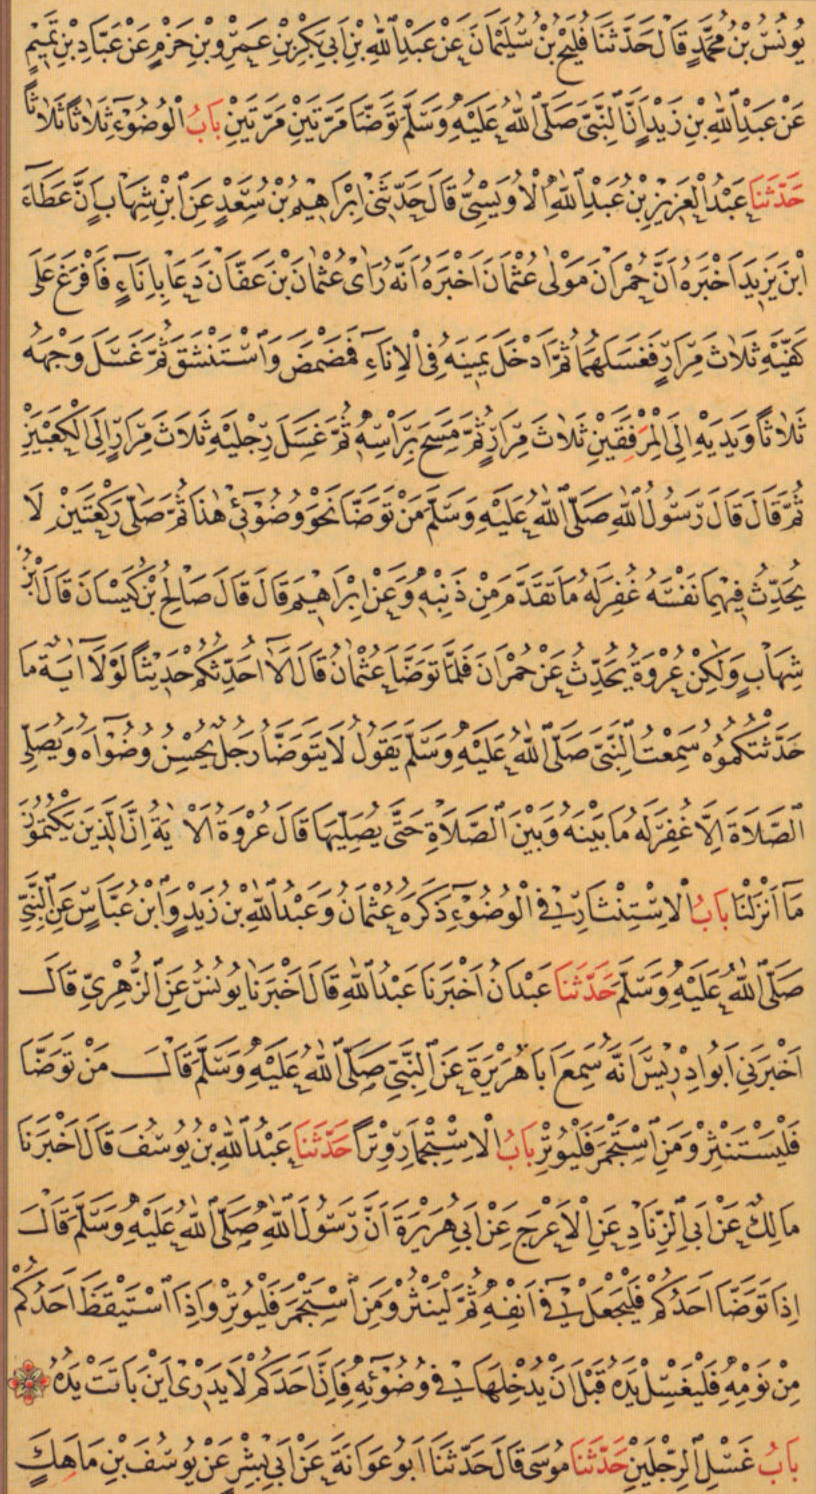 يُونُسُ بْنُ مُحَمَّدٍ قَالَ حَدَّثَنَا فُلَيْحُ بْنُ سُلَيْمَانَ عَنْ عَبْدِ اللهِ بْنِ اَبِي بَكْرِ بْنِ عَمْرِو بْنِ حَزْمٍ عَنْ عَبَّادِ بْنِ تَمِيمٍ
عَنْ عَبْدِ اللهِ بْنِ زَيْدٍ اَنَّ النَّبِيَّ صَلَّى اللهُ عَلَيْهِ وَسَلَّمَ تَوَضَّأَ مَرَّتَيْنِ مَرَّتَيْنِ بَابُ الْوُضُوءِ ثَلَاثًا ثَلَاثًا
حَدَّثَنَا عَبْدُ الْعَزِيزِ بْنُ عَبْدِ اللهِ الْاُوَيْسِيُّ قَالَ حَدَّثَنِي اِبْرَاهِيمُ بْنُ سَعْدٍ عَنِ ابْنِ شِهَابٍ اَنَّ عَطَاءَ
ابْنَ يَزِيدَ اَخْبَرَهُ اَنَّ حُمْرَانَ مَوْلٰى عُثْمَانَ اَخْبَرَهُ اَنَّهُ رَاٰى عُثْمٰنَ بْنَ عَفَّانَ دَعَا بِاِنَاءٍ فَاَفْرَغَ عَلٰى
كَفَّيْهِ ثَلٰثَ مِرَارٍ فَغَسَلَهُمَا ثُمَّ اَدْخَلَ يَمِينَهُ فِي الْاِنَاءِ فَمَضْمَضَ وَاسْتَنْشَقَ ثُمَّ غَسَلَ وَجْهَهُ
ثَلَاثًا وَيَدَيْهِ اِلَى الْمِرْفَقَيْنِ ثَلٰثَ مِرَارٍ ثُمَّ مَسَحَ بِرَأْسِهِ ثُمَّ غَسَلَ رِجْلَيْهِ ثَلَاثَ مِرَارٍ اِلَى الْكَعْبَيْنِ
ثُمَّ قَالَ قَالَ رَسُولُ اللهِ صَلَّى اللهُ عَلَيْهِ وَسَلَّمَ مَنْ تَوَضَّأَ نَحْوَ وُضُوئِي هٰذَا ثُمَّ صَلّٰى رَكْعَتَيْنِ لَا
يُحَدِّثُ فِيهِمَا نَفْسَهُ غُفِرَ لَهُ مَا تَقَدَّمَ مِنْ ذَنْبِهِ وَعَنْ اِبْرَاهِيمَ قَالَ قَالَ صَالِحُ بْنُ كَيْسَانَ قَالَ ابْنُ
شِهَابٍ وَلٰكِنْ عُرْوَةُ يُحَدِّثُ عَنْ حُمْرَانَ فَلَمَّا تَوَضَّأَ عُثْمَانُ قَالَ اَلَا اُحَدِّثُكُمْ حَدِيثًا لَوْلَا اٰيَةٌ مَا
حَدَّثْتُكُمُوهُ سَمِعْتُ النَّبِيَّ صَلَّى اللهُ عَلَيْهِ وَسَلَّمَ يَقُولُ لَا يَتَوَضَّأُ رَجُلٌ يُحْسِنُ وُضُوءَهُ وَيُصَلِّي
الصَّلَاةَ اِلَّا غُفِرَ لَهُ مَا بَيْنَهُ وَبَيْنَ الصَّلَاةِ حَتّٰى يُصَلِّيَهَا قَالَ عُرْوَةُ الْاٰيَةُ اِنَّ الَّذِينَ يَكْتُمُونَ
مَا اَنْزَلْنَا بَابُ الْاِسْتِنْثَارِ فِي الْوُضُوءِ ذَكَرَهُ عُثْمَانُ وَعَبْدُ اللهِ بْنُ زَيْدٍ وَابْنُ عَبَّاسٍ عَنِ النَّبِيِّ
صَلَّى اللهُ عَلَيْهِ وَسَلَّمَ حَدَّثَنَا عَبْدَانُ اَخْبَرَنَا عَبْدُ اللهِ قَالَ اَخْبَرَنَا يُونُسُ عَنِ الزُّهْرِيِّ قَالَ
اَخْبَرَنِي اَبُو اِدْرِيسَ اَنَّهُ سَمِعَ اَبَا هُرَيْرَةَ عَنِ النَّبِيِّ صَلَّى اللهُ عَلَيْهِ وَسَلَّمَ قَالَ مَنْ تَوَضَّأَ
فَلْيَسْتَنْثِرْ وَمَنِ اسْتَجْمَرَ فَلْيُوتِرْ بَابُ الْاِسْتِجْمَارِ وِتْرًا حَدَّثَنَا عَبْدُ اللهِ بْنُ يُوسُفَ قَالَ اَخْبَرَنَا
مَالِكٌ عَنْ اَبِي الزِّنَادِ عَنِ الْاَعْرَجِ عَنْ اَبِي هُرَيْرَةَ اَنَّ رَسُولَ اللهِ صَلَّى اللهُ عَلَيْهِ وَسَلَّمَ قَالَ
اِذَا تَوَضَّأَ اَحَدُكُمْ فَلْيَجْعَلْ فِي اَنْفِهِ ثُمَّ لْيَنْثُرْ وَمَنِ اسْتَجْمَرَ فَلْيُوتِرْ وَاِذَا اسْتَيْقَظَ اَحَدُكُمْ
مِنْ نَوْمِهِ فَلْيَغْسِلْ يَدَهُ قَبْلَ اَنْ يُدْخِلَهَا فِي وُضُوئِهِ فَاِنَّ اَحَدَكُمْ لَا يَدْرِي اَيْنَ بَاتَتْ يَدُهُ
بَابُ غَسْلِ الرِّجْلَيْنِ حَدَّثَنَا مُوسٰى قَالَ حَدَّثَنَا اَبُو عَوَانَةَ عَنْ اَبِي بِشْرٍ عَنْ يُوسُفَ بْنِ مَاهِكٍ